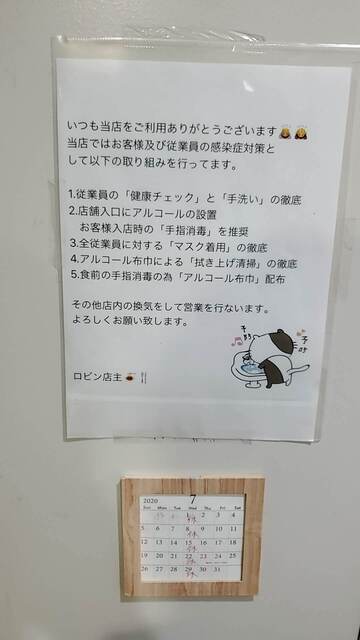 いつも当店をご利用ありがとうございます
当店ではお客様及び従業員の感染症対策と
して以下の取り組みを行ってます。
1.従業員の「健康チェック」と「手洗い」の徹底
2.店舗入口にアルコールの設置
お客様入店時の「手指消毒」を推奨
3.全従業員に対する「マスク着用」の徹底
4.アルコール布巾による「拭き上げ清掃」の徹底
5.食前の手指消毒の為「アルコール布巾」配布
その他店内の換気をして営業を行ないます。
よろしくお願い致します。
予防
予防
ロビン店主
2020 7
Sun Mon Tue Wed Thu Fri Sat
1 2 3 4
5 6 7 8 9 10 11
12 13 14 15 16 17 18
19 20 21 22 23 24 25
26 27 28 29 30 31